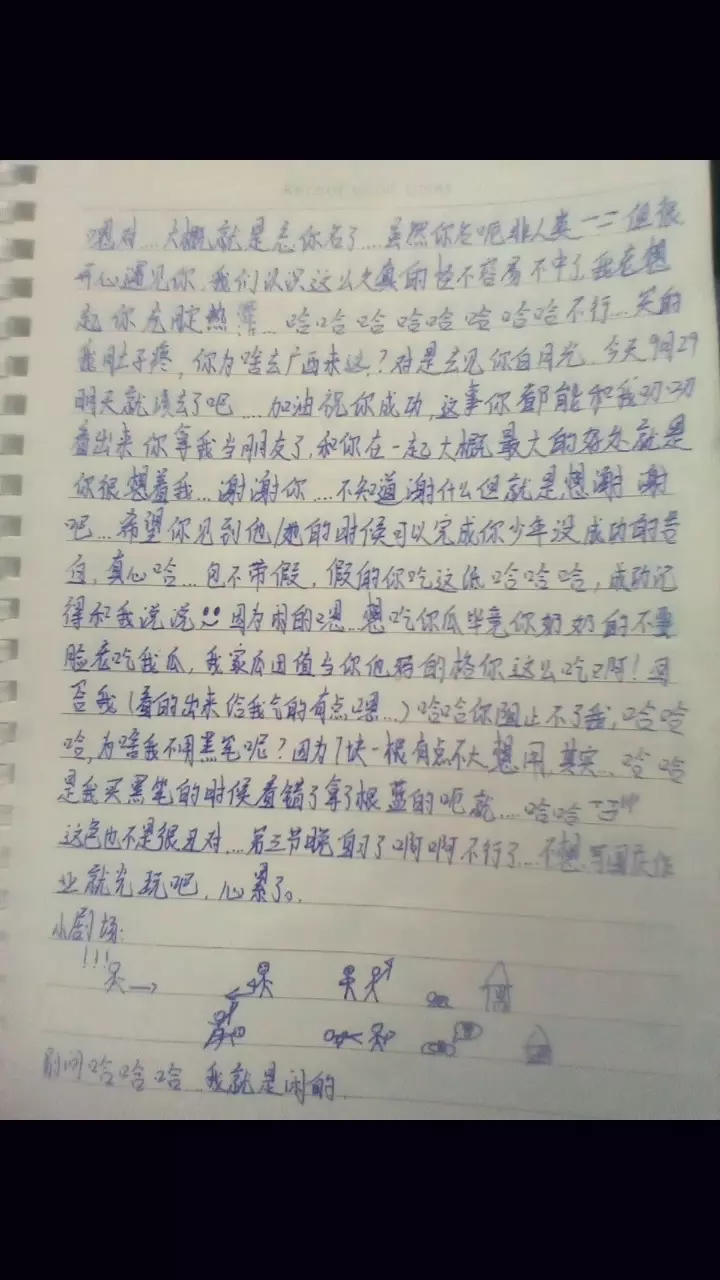 嗯对...大概就是忘你名了...虽然你是呃非人类一二但很
开心遇见你,我们认识这么久真的怪不容易不中了,我在想
起你 ... 哈哈哈哈哈哈哈哈不行...笑的
我肚子疼,你为啥去广西来这?对是去见你白月光,今天9月29
明天就该去了吧....加油祝你成功,这事你都能和我叨叨
看出来你拿我当朋友了,和你在一起大概最大的好处就是
你很想着我...谢谢你....不知道谢什么但就是想谢谢
吧...希望你见到他/她的时候可以完成你少年没成功的告
白,真心哈...包不带假,假的你吃这纸哈哈哈,成功记
得和我说说 因为闲的嗯...想吃你瓜毕竟你奶奶的不要
脸老吃我瓜,我家瓜田值当你他妈的格你这么吃啊!回
否我(看的出来给我气的有点嗯...)哈哈你阻止不了我,哈哈
哈,为啥我不用黑笔呢?因为1块一根有点不大想用,其实...哈哈
是我买黑笔的时候看错了拿了根蓝的呃就....哈哈
这色也不是很丑对...第三节晚自习了啊啊不行了...不想写国庆作
业就光玩吧,心累了。
小剧场:
!!!
别问哈哈哈 我就是闲的.